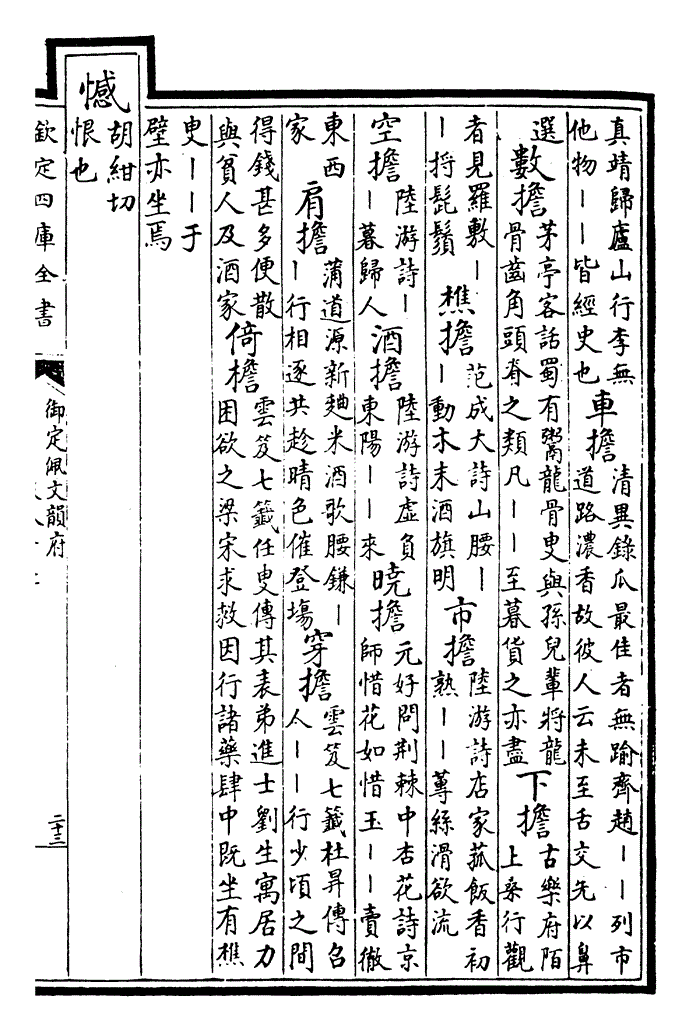 真靖歸廬山行李無
他物｜｜皆經史也
車擔
清異錄瓜最佳者無踰齊趙｜｜列市
道路濃香故彼人云未至舌交先以鼻
選
數擔
茅亭客話蜀有鬻龍骨叟與孫兒輩將龍
骨齒角頭脊之類凡｜｜至暮貨之亦盡
下擔
古樂府陌
上桑行觀
者見羅敷｜
｜捋髭鬚
樵擔
范成大詩山腰｜
｜動木末酒旗明
市擔
陸游詩店家菰飯香初
熟｜｜蓴絲滑欲流
空擔
陸游詩｜
｜暮歸人
酒擔
陸游詩虛負
東陽｜｜來
曉擔
元好問荆棘中杏花詩京
師惜花如惜玉｜｜賣徹
東西
家
肩擔
蒲道源新麯米酒歌腰鎌｜
｜行相逐共趁晴色催登場
穿擔
雲笈七籤杜昇傳召
人｜｜行少頃之間
得錢甚多便散
與貧人及酒家
倚擔
雲笈七籤任叟傳其表弟進士劉生寓居力
困欲之梁宋求救因行諸藥肆中既坐有樵
叟｜｜于
壁亦坐焉
憾
胡紺切
恨也
欽定四庫全書
御定佩文韻府
二十三